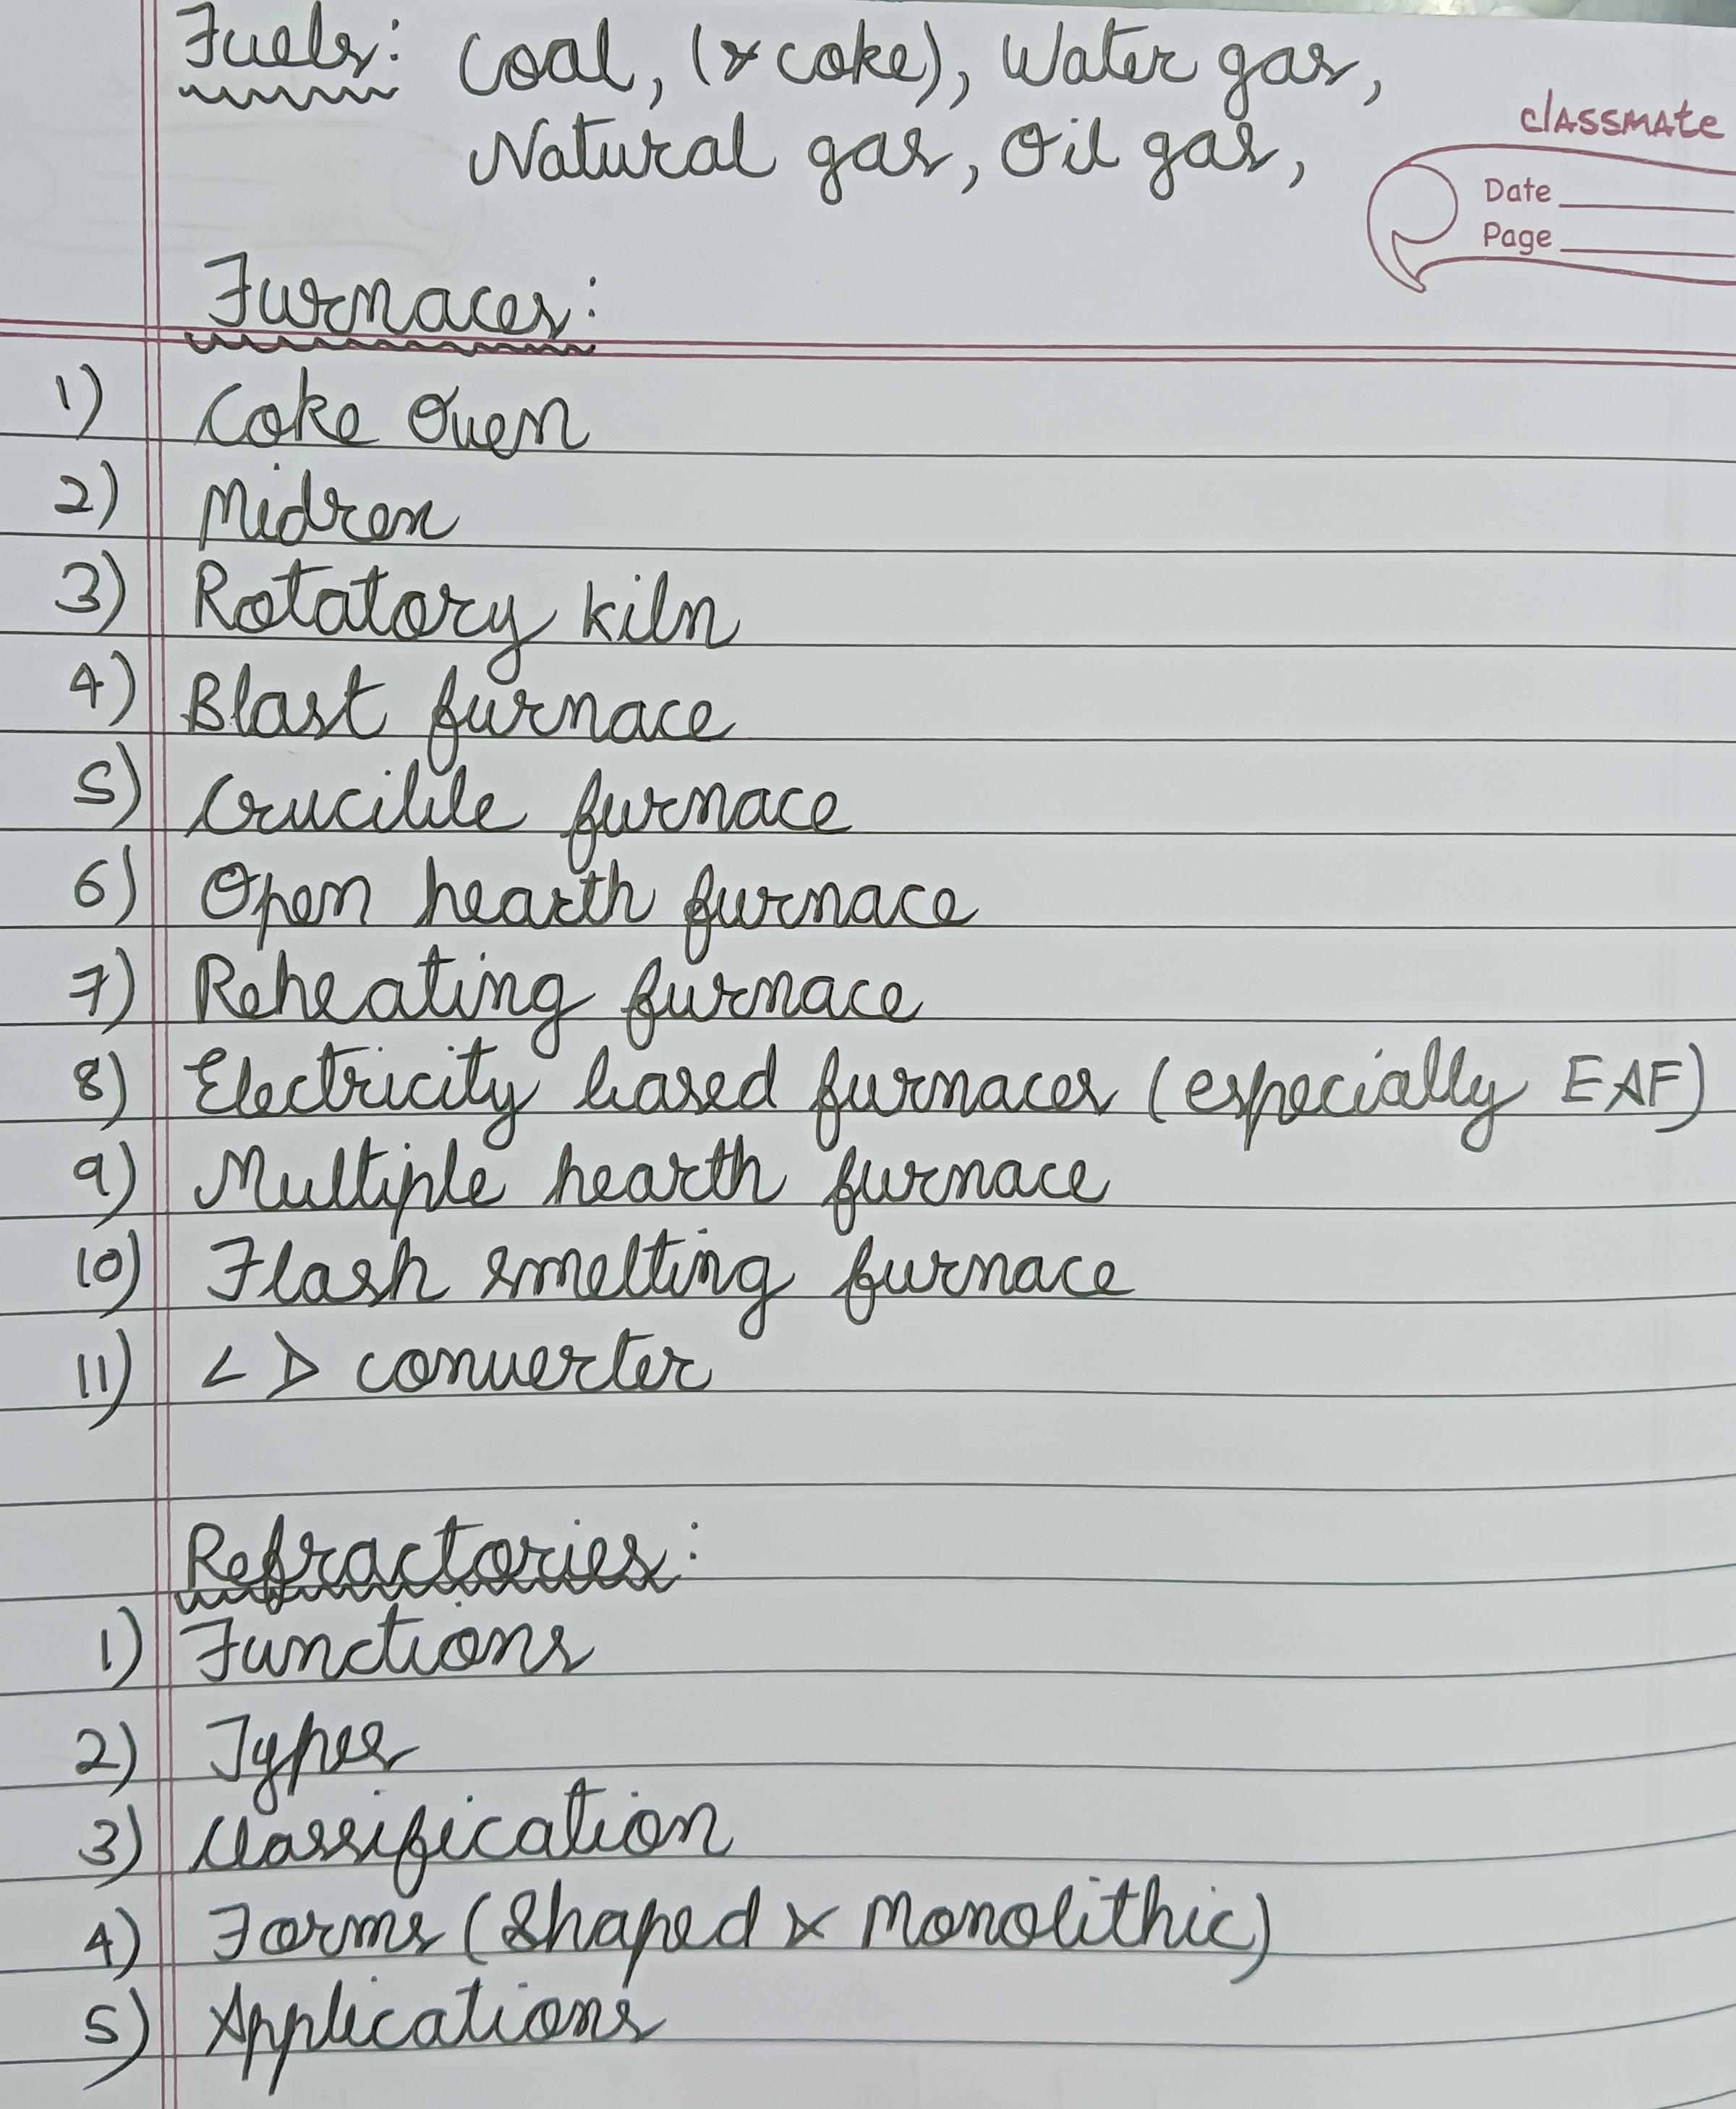 Fuels: Coal, (& coke), Water gas,
Natural gas, Oil gas,
classmate
Date
Page
Furnaces:
1) Coke Oven
2) Midrex
3) Rotatory kiln
4) Blast furnace
5) Crucible furnace
6) Open hearth furnace
7) Reheating furnace
8) Electricity based furnaces (especially EAF)
9) Multiple hearth furnace
10) Flash smelting furnace
11) LD converter
Refractories:
1) Functions
2) Types
3) Classification
4) Forms (Shaped & Monolithic)
5) Applications